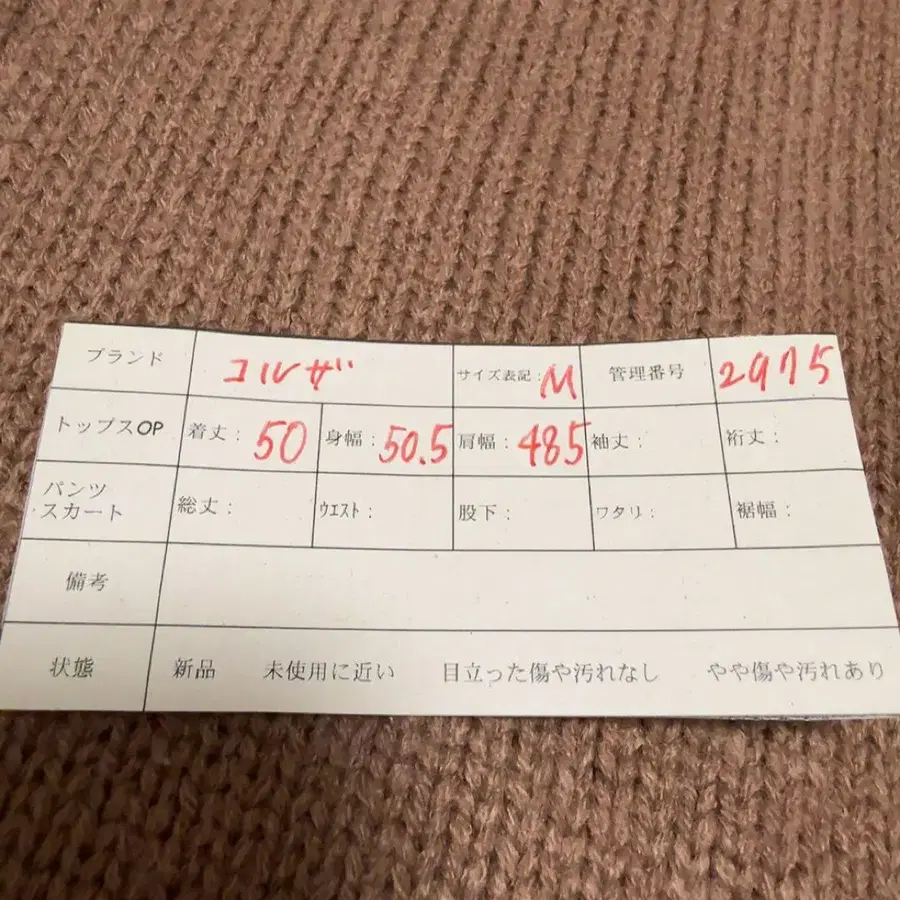 ブランド コルザ サイズ表記:M 管理番号 2975
トップスOP 着丈: 50 身幅: 50.5 肩幅: 485 袖丈: 裄丈:
パンツ
スカート 総丈: ウエスト: 股下: ワタリ: 裾幅:
備考
状態 新品 未使用に近い 目立った傷や汚れなし やや傷や汚れあり